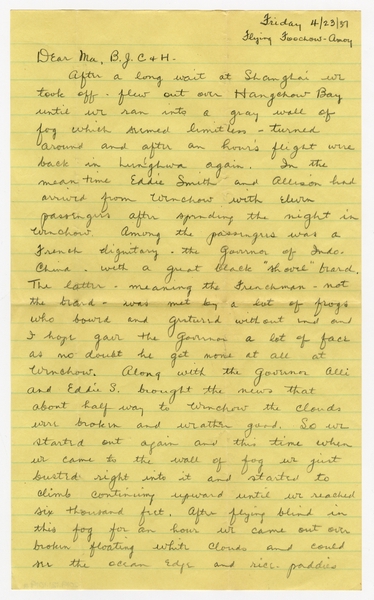 Friday 4/23/37
Flying Foochow-Amoy
Dear Ma, B. J. C & H.
After a long wait at Shanghai we
took off - flew out over Hangchow Bay
until we ran into a gray wall of
fog which seemed limitless - turned
around and after an hour's flight were
back in Lunghwa again. In the
mean time Eddie Smith and Allison had
arrived from Wenchow with eleven
passengers after spending the night in
Wenchow. Among the passengers was a
French dignitary - the Govenor of Indo-
China - with a great black "shovel" beard.
The latter - meaning the Frenchman - not
the beard - was met by a lot of frogs
who bowed and gestured without end and
I hope gave the Govenor a lot of face
as no doubt he got none at all at
Wenchow. Along with the Govenor Alli
and Eddie S. brought the news that
about half way to Wenchow the clouds
were broken and weather good. So we
started out again and this time when
we came to the wall of fog we just
busted right into it and started to
climb continuing upward until we reached
six thousand feet. After flying blind in
this fog for an hour we came out over
broken floating white clouds and could
see the ocean edge and rice paddies